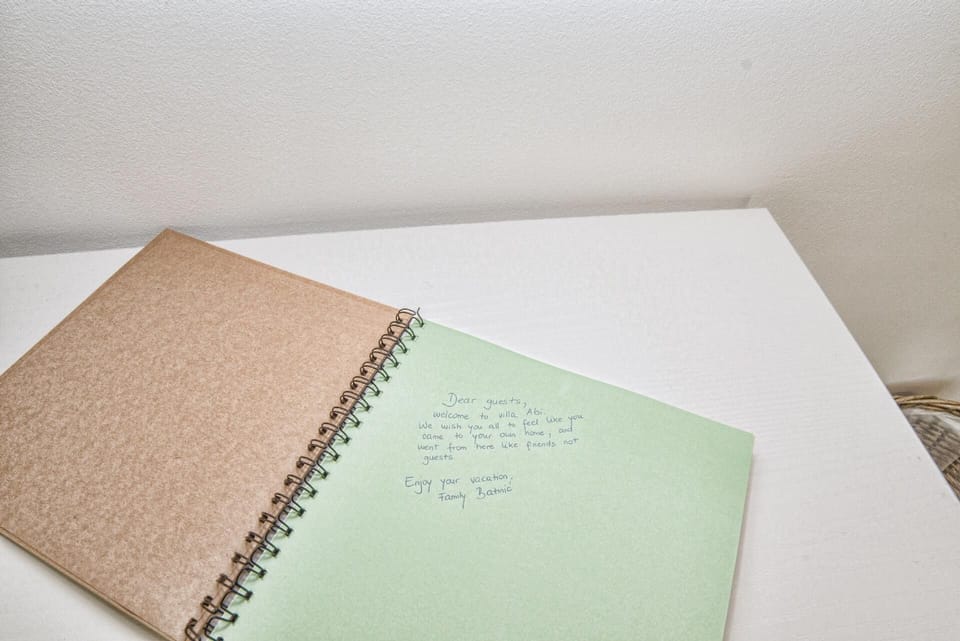 Dear guests,
welcome to villa Abi.
We wish you all to feel like you
came to your own home, and
went from here like friends not
guests
Enjoy your vacation,
Family Batinić